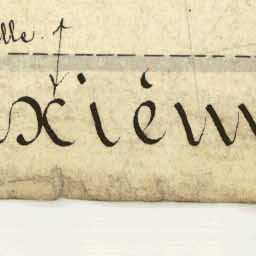 lle
xièm